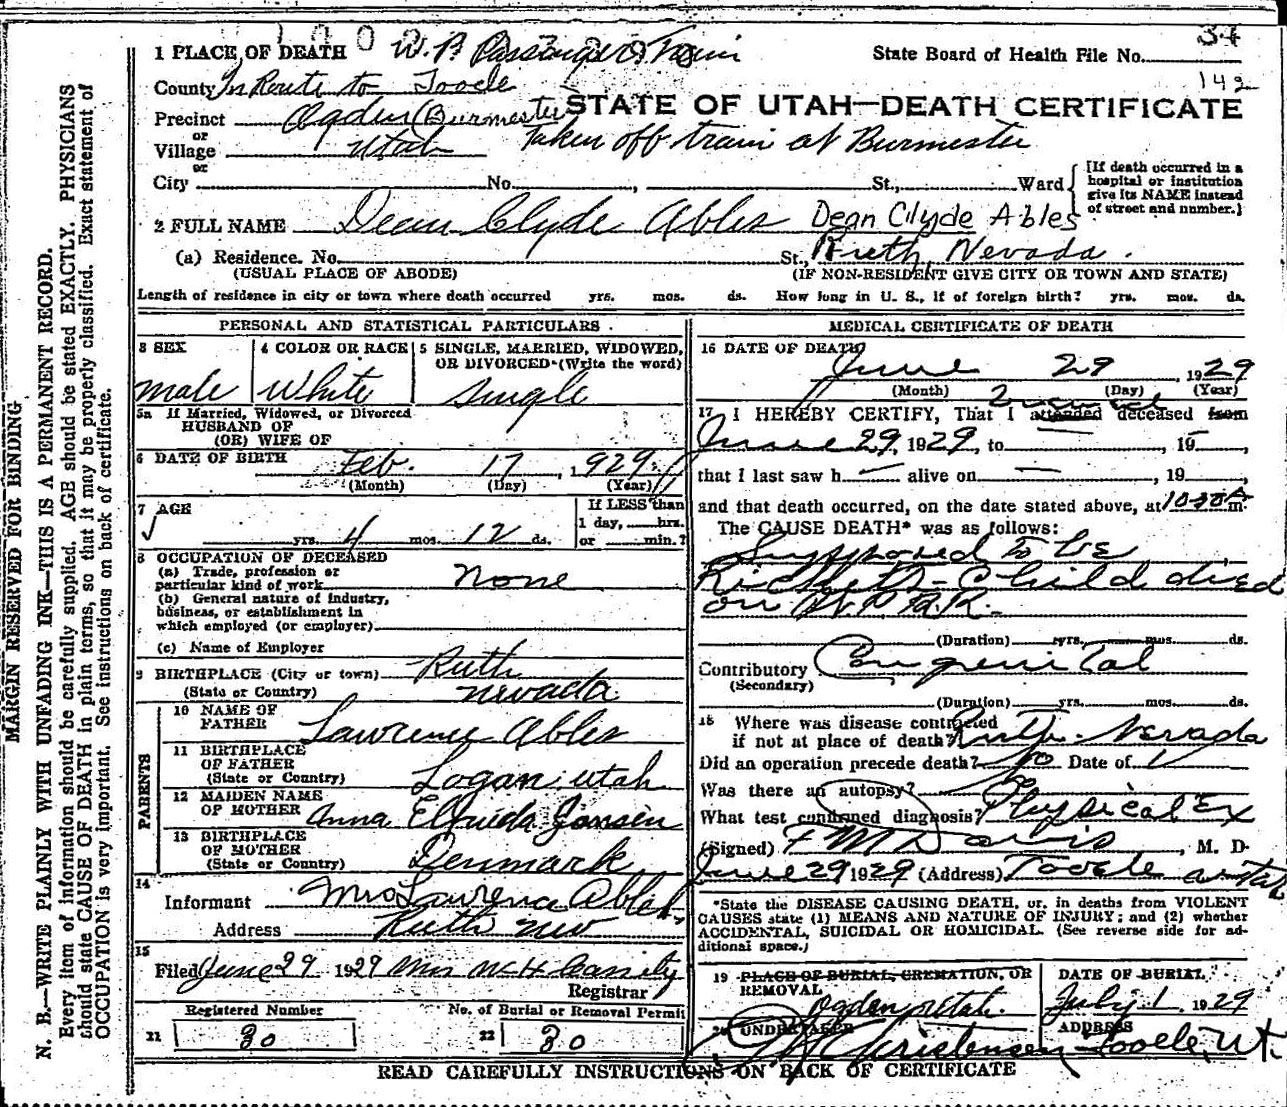 34
1 PLACE OF DEATH W.P. Passenger Train State Board of Health File No.
142
County In Route to Tooele
STATE OF UTAH—DEATH CERTIFICATE
Precinct Ogden (Burmester)
or
Village Utah Taken off train at Burmester
or
City No. , St., Ward
[If death occurred in a hospital or institution give its NAME instead of street and number.]
2 FULL NAME Dean Clyde Ables Dean Clyde Ables
(a) Residence. No. St., Ruth, Nevada.
(USUAL PLACE OF ABODE) (IF NON-RESIDENT GIVE CITY OR TOWN AND STATE)
Length of residence in city or town where death occurred yrs. mos. ds. How long in U. S., if of foreign birth? yrs. mos. ds.
PERSONAL AND STATISTICAL PARTICULARS
3 SEX
male
4 COLOR OR RACE
White
5 SINGLE, MARRIED, WIDOWED,
OR DIVORCED (Write the word)
single
5a If Married, Widowed, or Divorced
HUSBAND OF
(OR) WIFE OF
6 DATE OF BIRTH Feb. 17, 1929
(Month) (Day) (Year)
7 AGE
yrs. 4 mos. 12 ds.
If LESS than
1 day, hrs.
or min.?
8 OCCUPATION OF DECEASED
(a) Trade, profession or
particular kind of work none
(b) General nature of Industry,
business, or establishment in
which employed (or employer)
(c) Name of Employer
9 BIRTHPLACE (City or town) Ruth
(State or Country) Nevada
PARENTS
10 NAME OF
FATHER Lawrence Ables
11 BIRTHPLACE
OF FATHER
(State or Country) Logan Utah
12 MAIDEN NAME
OF MOTHER Anna Elfrieda Jensen
13 BIRTHPLACE
OF MOTHER
(State or Country) Denmark
14
Informant Mrs Lawrence Ables
Address Ruth Nev
15
Filed June 29 1929 Mrs
Registrar
Registered Number
21 30
No. of Burial or Removal Permit
22 30
MEDICAL CERTIFICATE OF DEATH
16 DATE OF DEATH
June 29, 1929
(Month) (Day) (Year)
17 I HEREBY CERTIFY, That I attended deceased from
June 29, 1929, to , 19
that I last saw h alive on , 19
and that death occurred, on the date stated above, at m.
The CAUSE DEATH* was as follows:
Supposed to be
Ricketts - Child died
on W.P. R.R.
(Duration) yrs. mos. ds.
Contributory Congenital
(Secondary)
(Duration) yrs. mos. ds.
18 Where was disease contracted
if not at place of death? Ruth - Nevada
Did an operation precede death? No Date of
Was there an autopsy? No
What test confirmed diagnosis? Physical Ex
(Signed) F M Davis, M. D.
June 29 1929 (Address) Tooele Utah
*State the DISEASE CAUSING DEATH, or, in deaths from VIOLENT
CAUSES state (1) MEANS AND NATURE OF INJURY; and (2) whether
ACCIDENTAL, SUICIDAL OR HOMICIDAL. (See reverse side for ad-
ditional space.)
19 PLACE OF BURIAL, CREMATION, OR
REMOVAL
Ogden Utah.
DATE OF BURIAL
July 1 1929
20 UNDERTAKER
Christensen
ADDRESS
Tooele, Ut.
READ CAREFULLY INSTRUCTIONS ON BACK OF CERTIFICATE
MARGIN RESERVED FOR BINDING
N. B.—WRITE PLAINLY WITH UNFADING INK—THIS IS A PERMANENT RECORD.
Every item of information should be carefully supplied. AGE should be stated EXACTLY. PHYSICIANS
should state CAUSE OF DEATH in plain terms, so that it may be properly classified. Exact statement of
OCCUPATION is very important. See instructions on back of certificate.